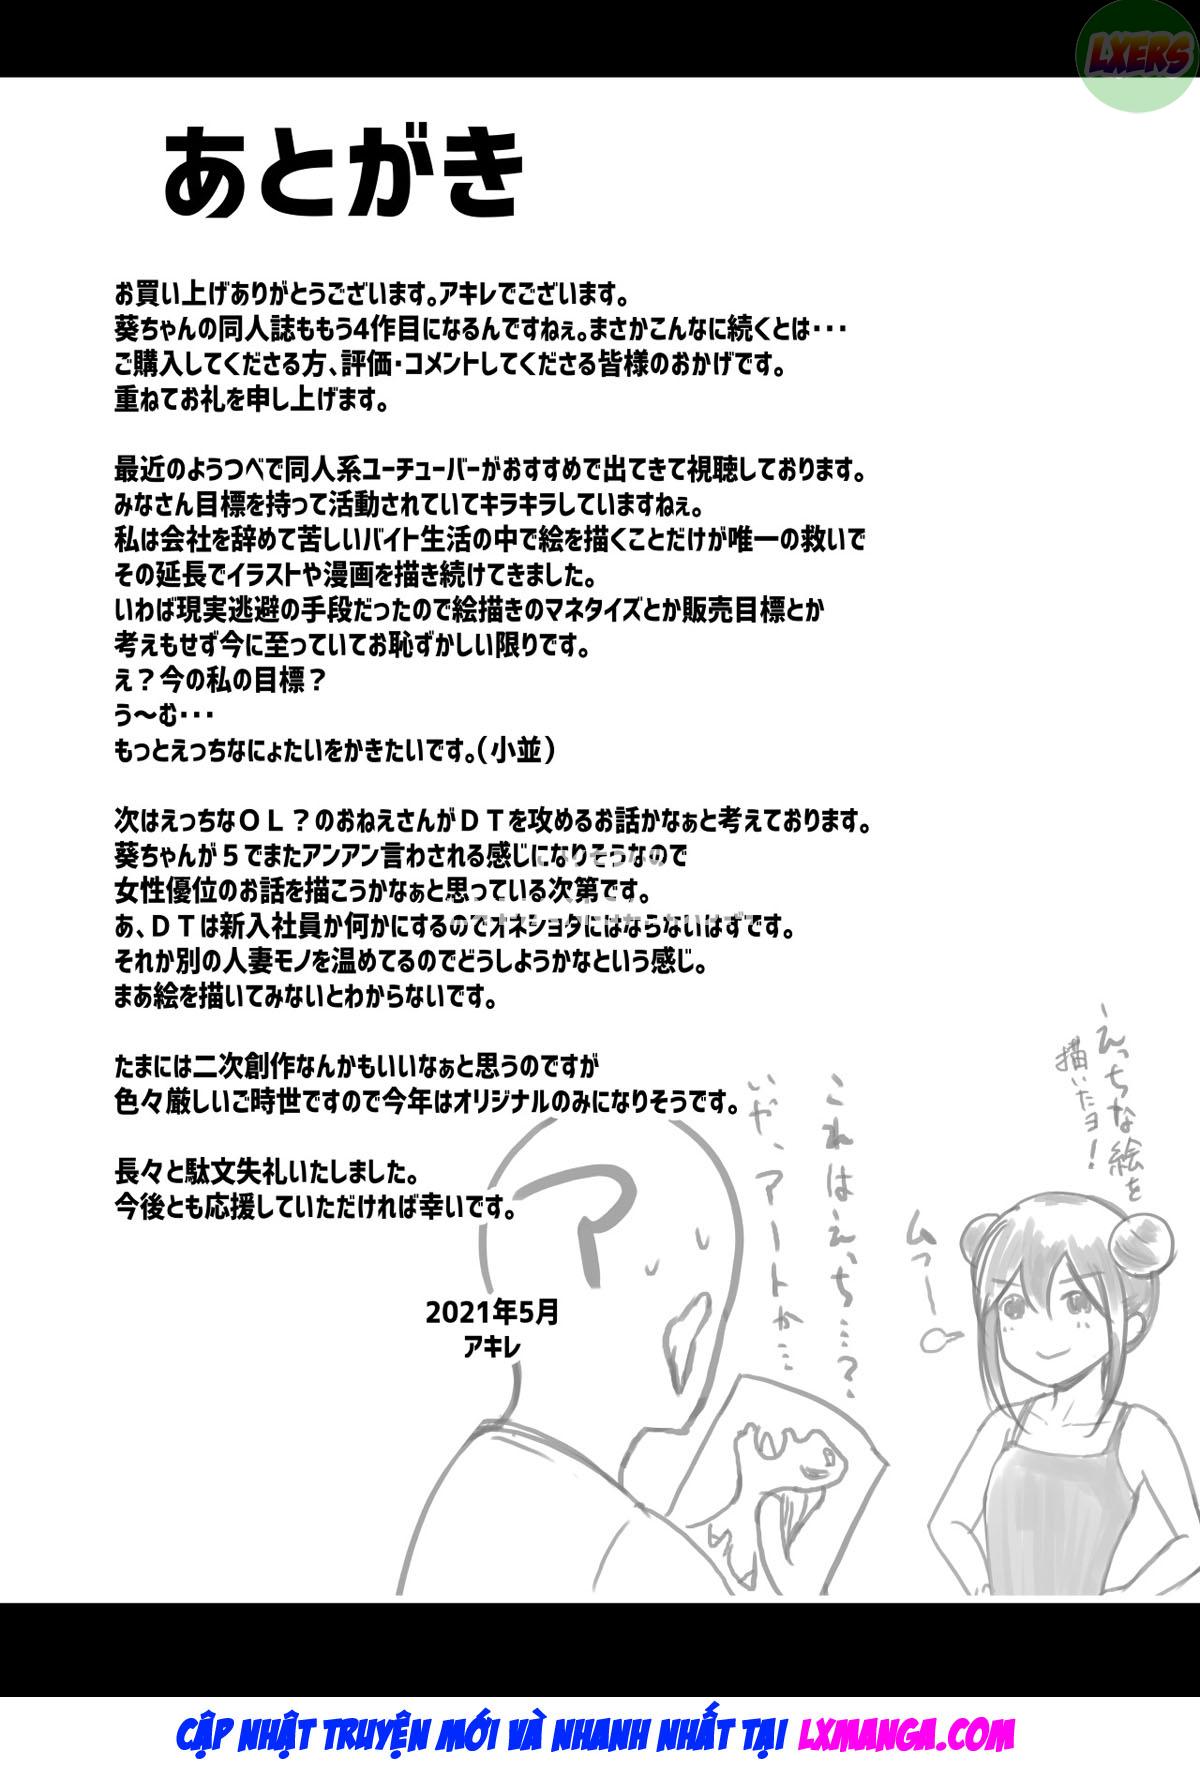 LXERS
あとがき
お買い上げありがとうございます。アキレでございます。
葵ちゃんの同人誌ももう4作目になるんですねぇ。まさかこんなに続くとは・・・
ご購入してくださる方、評価・コメントしてくださる皆様のおかげです。
重ねてお礼を申し上げます。
最近のようつべで同人系ユーチューバーがおすすめで出てきて視聴しております。
みなさん目標を持って活動されていてキラキラしていますねぇ。
私は会社を辞めて苦しいバイト生活の中で絵を描くことだけが唯一の救いで
その延長でイラストや漫画を描き続けてきました。
いわば現実逃避の手段だったので絵描きのマネタイズとか販売目標とか
考えもせず今に至っていてお恥ずかしい限りです。
え？今の私の目標？
う～む・・・
もっとえっちなにょたいをかきたいです。（小並）
次はえっちなＯＬ？のおねえさんがＤＴを攻めるお話かなぁと考えております。
葵ちゃんが５でまたアンアン言わされる感じになりそうなので
女性優位のお話を描こうかなぁと思っている次第です。
あ、ＤＴは新入社員か何かにするのでオネショタにはならないはずです。
それか別の人妻モノを温めてるのでどうしようかなという感じ。
まあ絵を描いてみないとわからないです。
たまには二次創作なんかもいいなぁと思うのですが
色々厳しいご時世ですので今年はオリジナルのみになりそうです。
長々と駄文失礼いたしました。
今後とも応援していただければ幸いです。
2021年5月
アキレ
えっちな絵を
描いたヨ！
ムっー
これはえっち…？
いや、アートか…
ア
CẬP NHẬT TRUYỆN MỚI VÀ NHANH NHẤT TẠI LXMANGA.COM